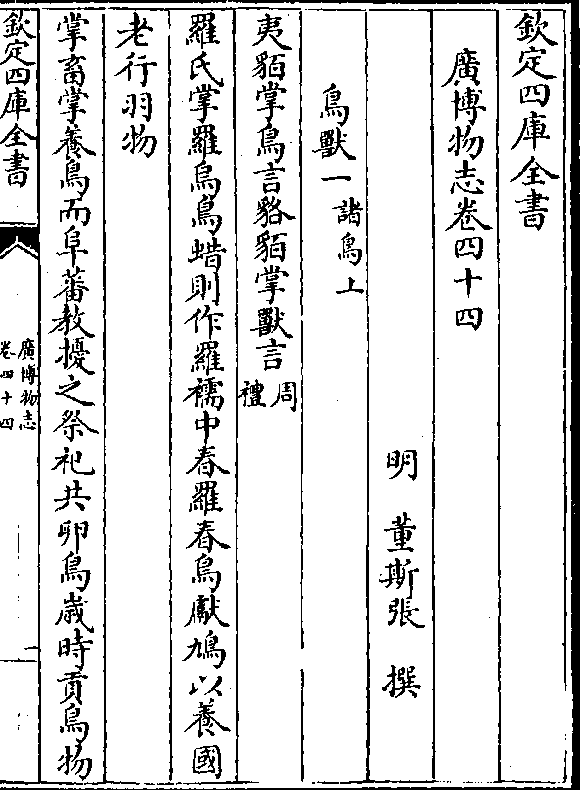 欽定四庫全書
廣博物志卷四十四
明 董斯張 撰
鳥獸一諸鳥上
夷貊掌鳥言貉貊掌獸言周禮
羅氏掌羅烏鳥蜡則作羅襦中春羅春鳥獻鳩以養國
老行羽物
掌畜掌養鳥而阜蕃教擾之祭祀共卵鳥歳時貢鳥物
欽定四庫全書
廣博物志
卷四十四
一